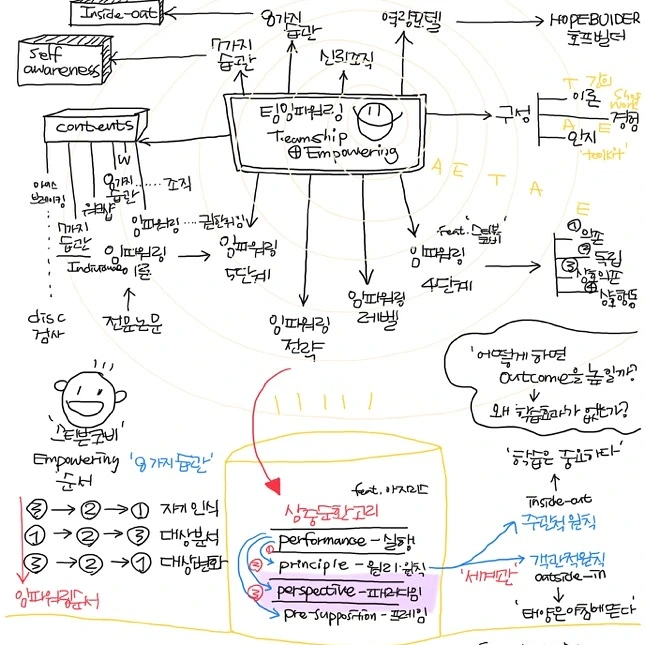 Inside-out
8가지
습관
역량모델
HOPEBUIDER
호프빌더
Self
awareness
7가지
습관
신뢰조직
팀임파워링
Teamship
⊕ Empowering
구성
T
이론
경험
인지
'toolkit'
A
E
contents
W
8가지
습관
조직
워크샵
임파워링
권한위임
7가지
습관
Individual
임파워링
이론
disc
검사
전문논문
임파워링
5단계
임파워링
전략
임파워링
레벨
feat.
임파워링
4단계
① 의존
② 독립
③ 상호의존
④
A E T A E
'어떻게 하면
outcome을 높일까?
왜 학습효과가 없는가?
'학습은 중요하다'
inside-out
주관적 원칙
객관적 원칙
outside-in
'세계관'
'태양은 아침에 뜬다'
'스티븐 코비'
Empowering
순서
'8가지 습관'
③ → ② → ① 자기인식
① → ② → ③ 대상분석
③ → ② → ① 대상변화
임파워링순서
feat. 아지리스
삼중순환고리
performance - 실행
① 
② principle - 원리·원칙
③ perspective - 패러다임
pre-supposition - 프레임